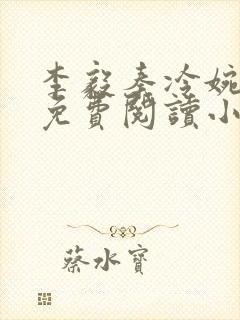 李毅秦冷婉
免費閱讀小
蔡水寶